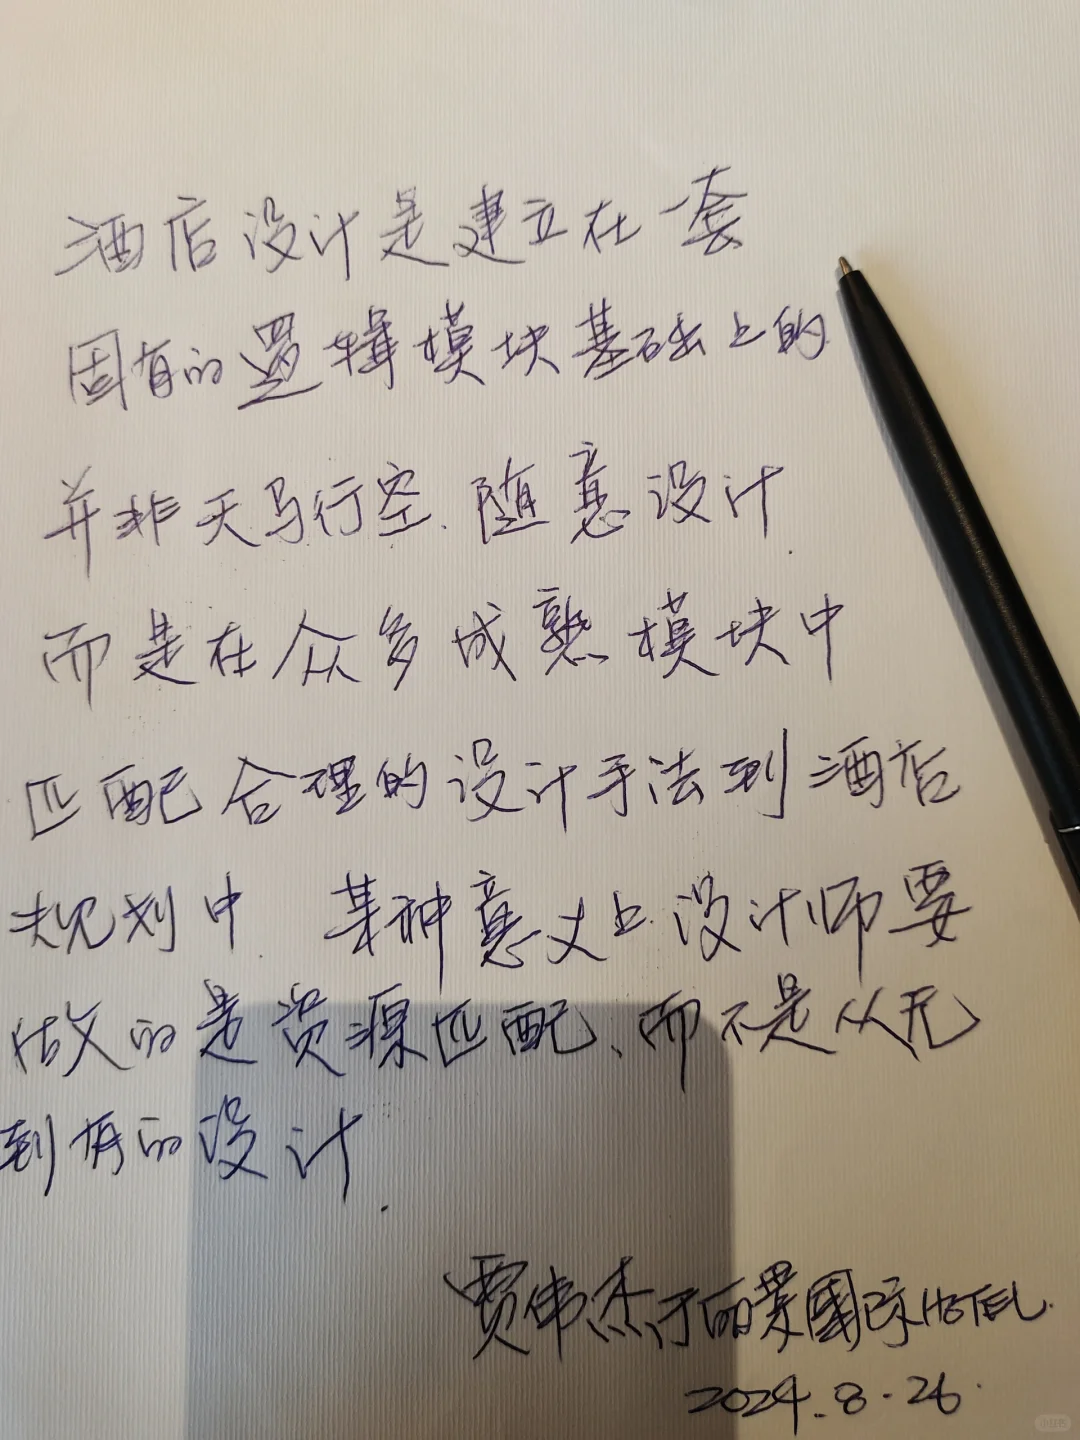 酒店设计是建立在一套
固有的逻辑模块基础上的
并非天马行空.随意设计.
而是在众多成熟模块中
匹配合理的设计手法到酒店
规划中.某种意义上.设计师要
做的是资源匹配、而不是从无
到有的设计.
贾伟杰于丽景國际HOTEL.
2024.8.26.
小红书